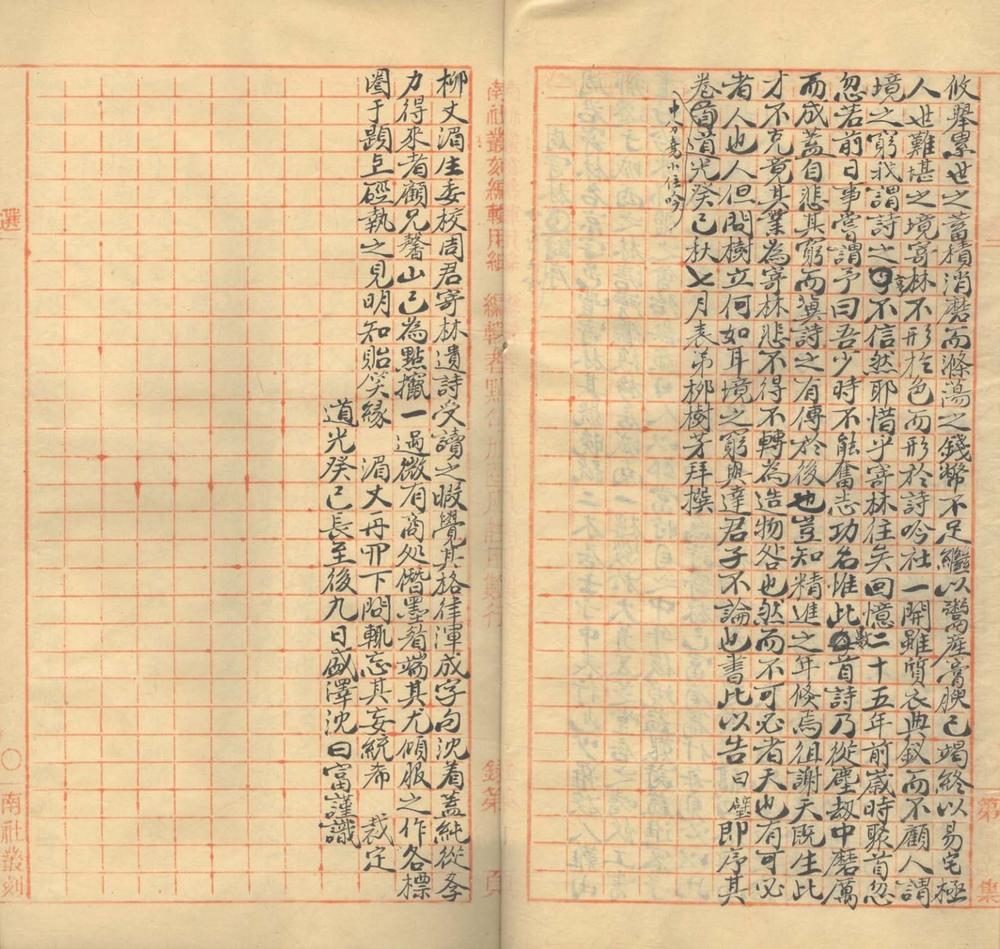 攸舉累世之蓄積消磨而滌蕩之錢幣不足繼以鬻產膏腴已竭終以易宅極
人世難堪之境寄林不形於色而形於詩吟社一開雖質衣典釵而不顧人謂
境之窮我謂詩之不信然耶惜乎寄林往矣回憶二十五年前歲時聚首忽
忽若前日事嘗謂予曰吾少時不能奮志功名惟此數首詩乃從塵劫中磨厲
而成蓋自悲其窮而冀詩之有傳於後也豈知精進之年倏焉徂謝天既生此
才不克竟其業為寄林悲不得不轉為造物咎也然而不可必者天也有可必
者人也人但問樹立何如耳境之窮與達君子不論也書此以告曰壁即序其
卷首道光癸巳秋七月表弟柳樹芳拜撰
十刀竟小住吟
第
集
南社叢刻編輯用紙
編輯者
錄第
頁
柳丈湄生委校周君寄林遺詩受讀之暇覺其格律渾成字句沈着蓋純從冬
力得來者顧兄馨山已為點攛一過微有商処僭墨眢端其尤傾服之作各標
圈于題上硜執之見明知貽笑緣　湄丈再四下問輒忘其妄統希　裁定
道光癸巳長至後九日盛澤沈曰富謹識
選
〇
南社叢刻